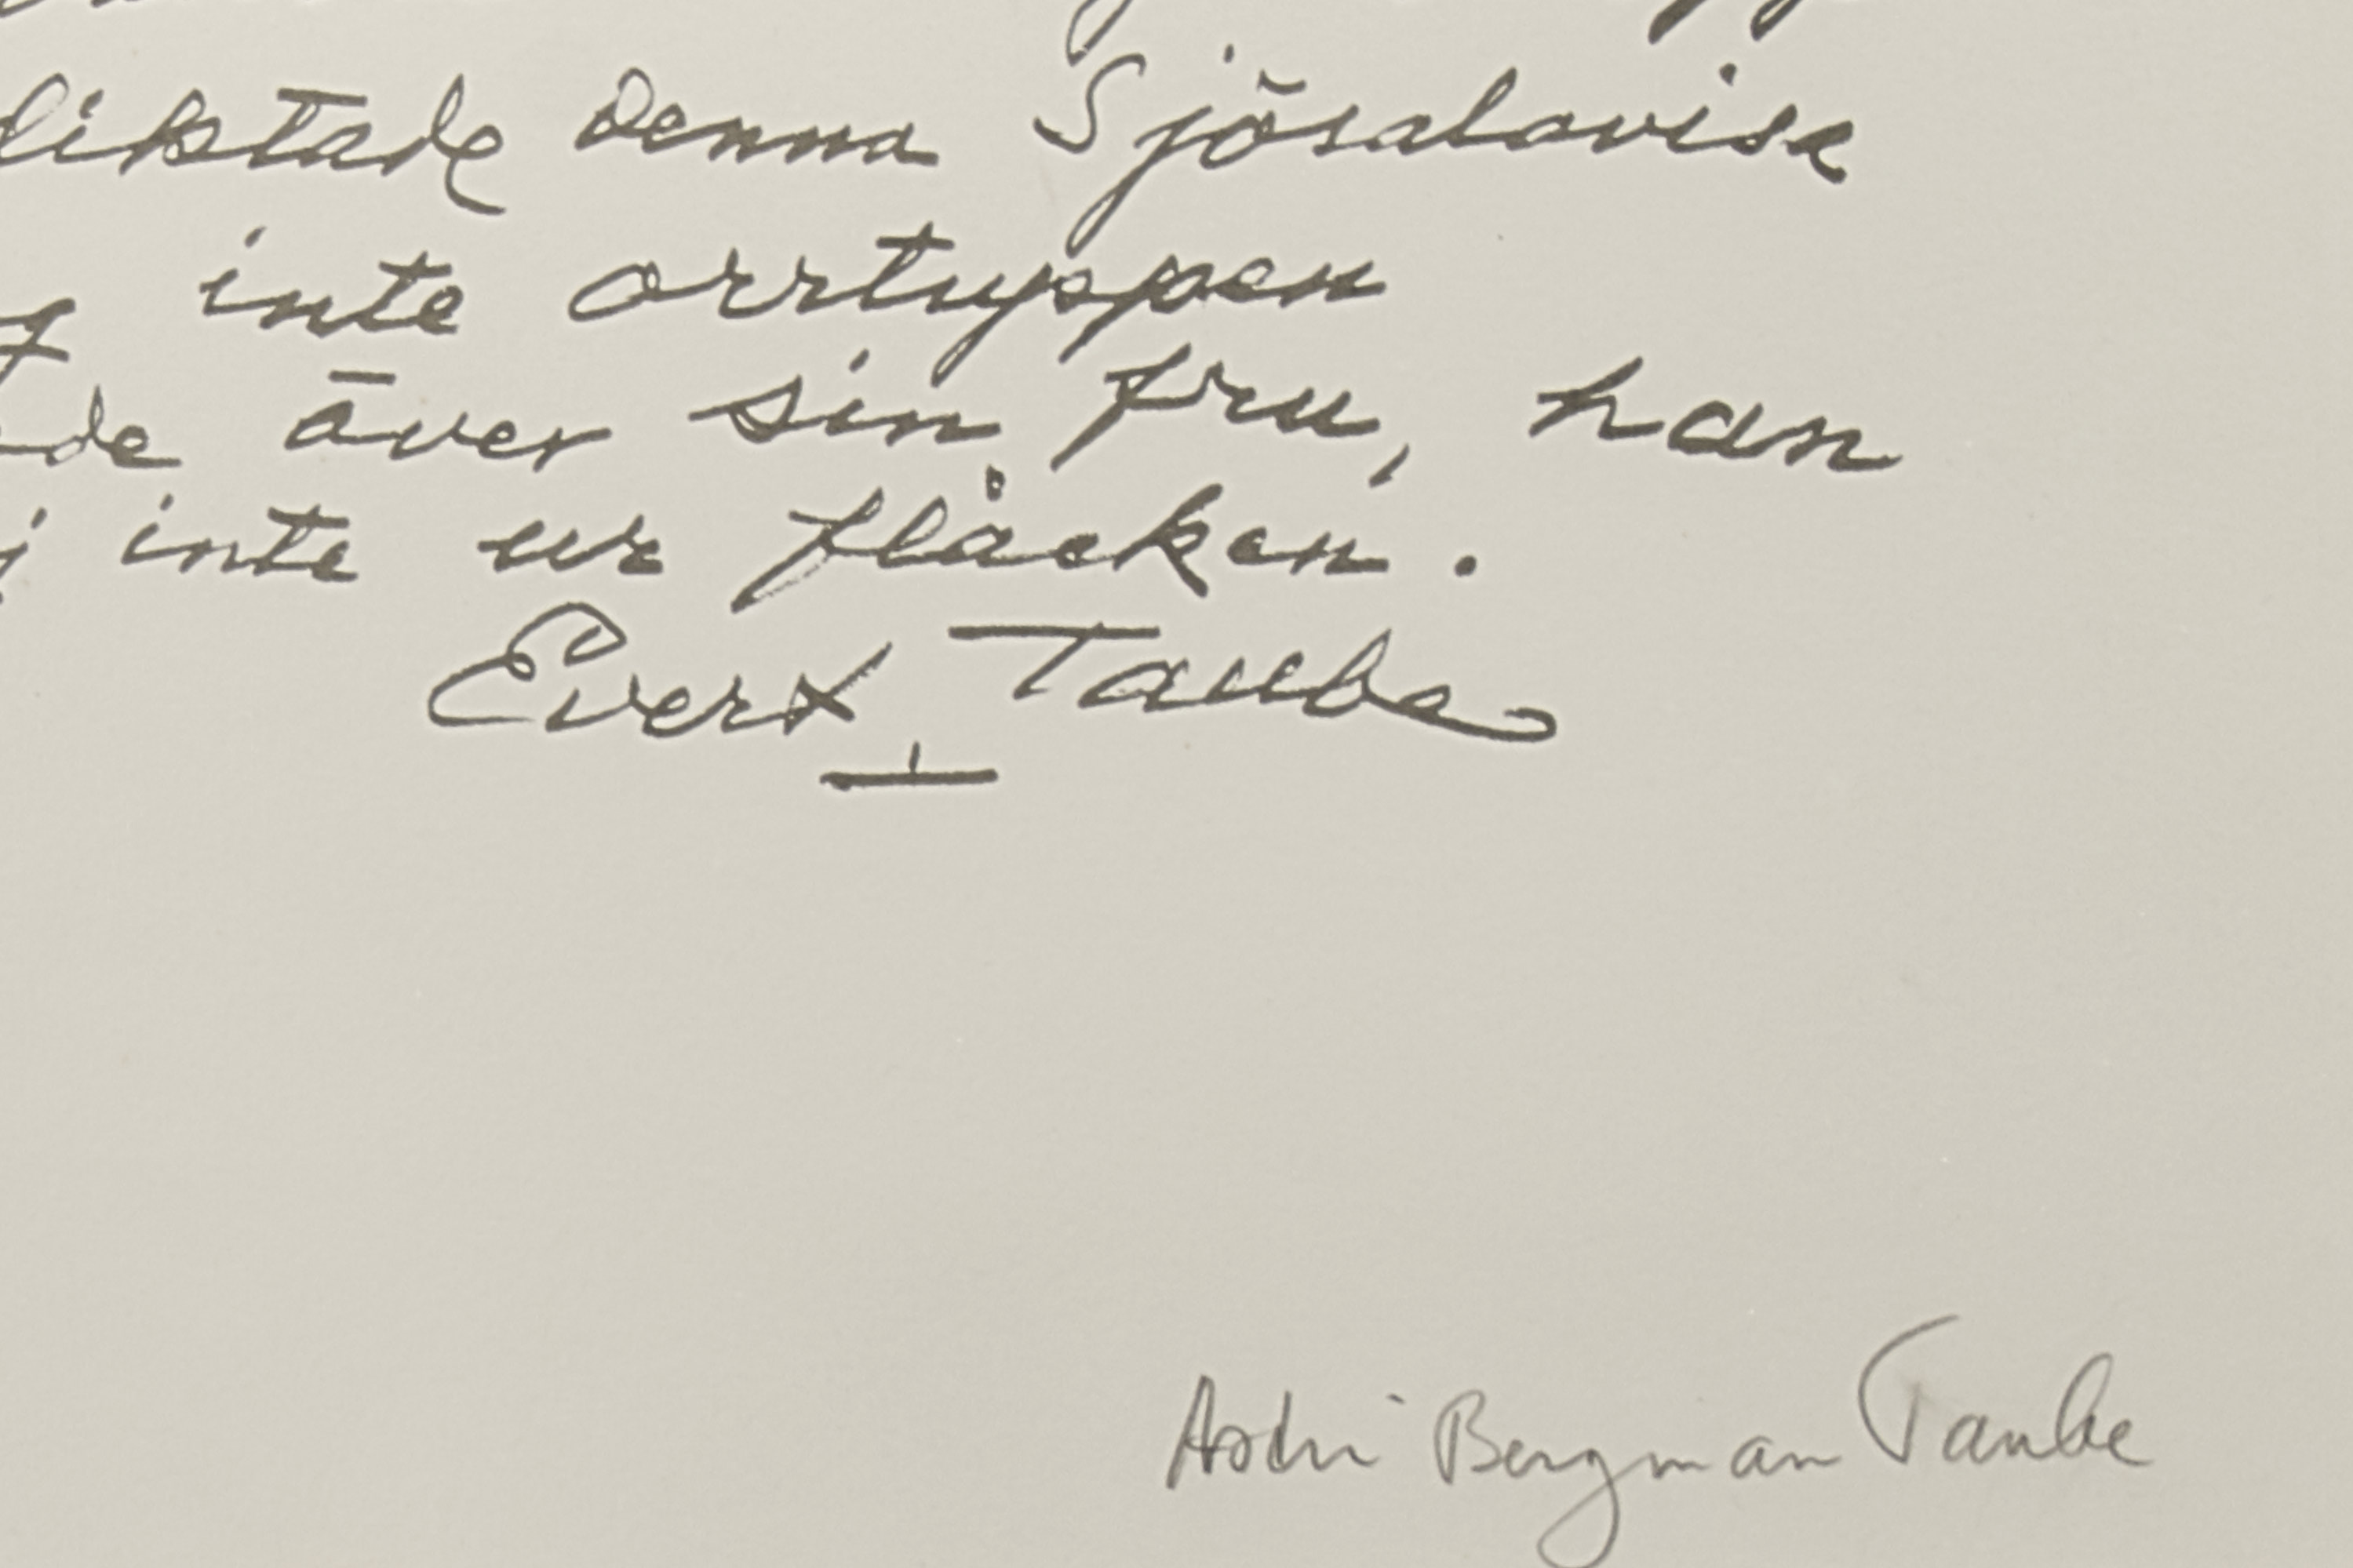 diktade denna Sjösalavisa
inte orrtuppen
de över sin fru, han
j inte ur fläcken.
Evert Taube
Astri Bergman Taube